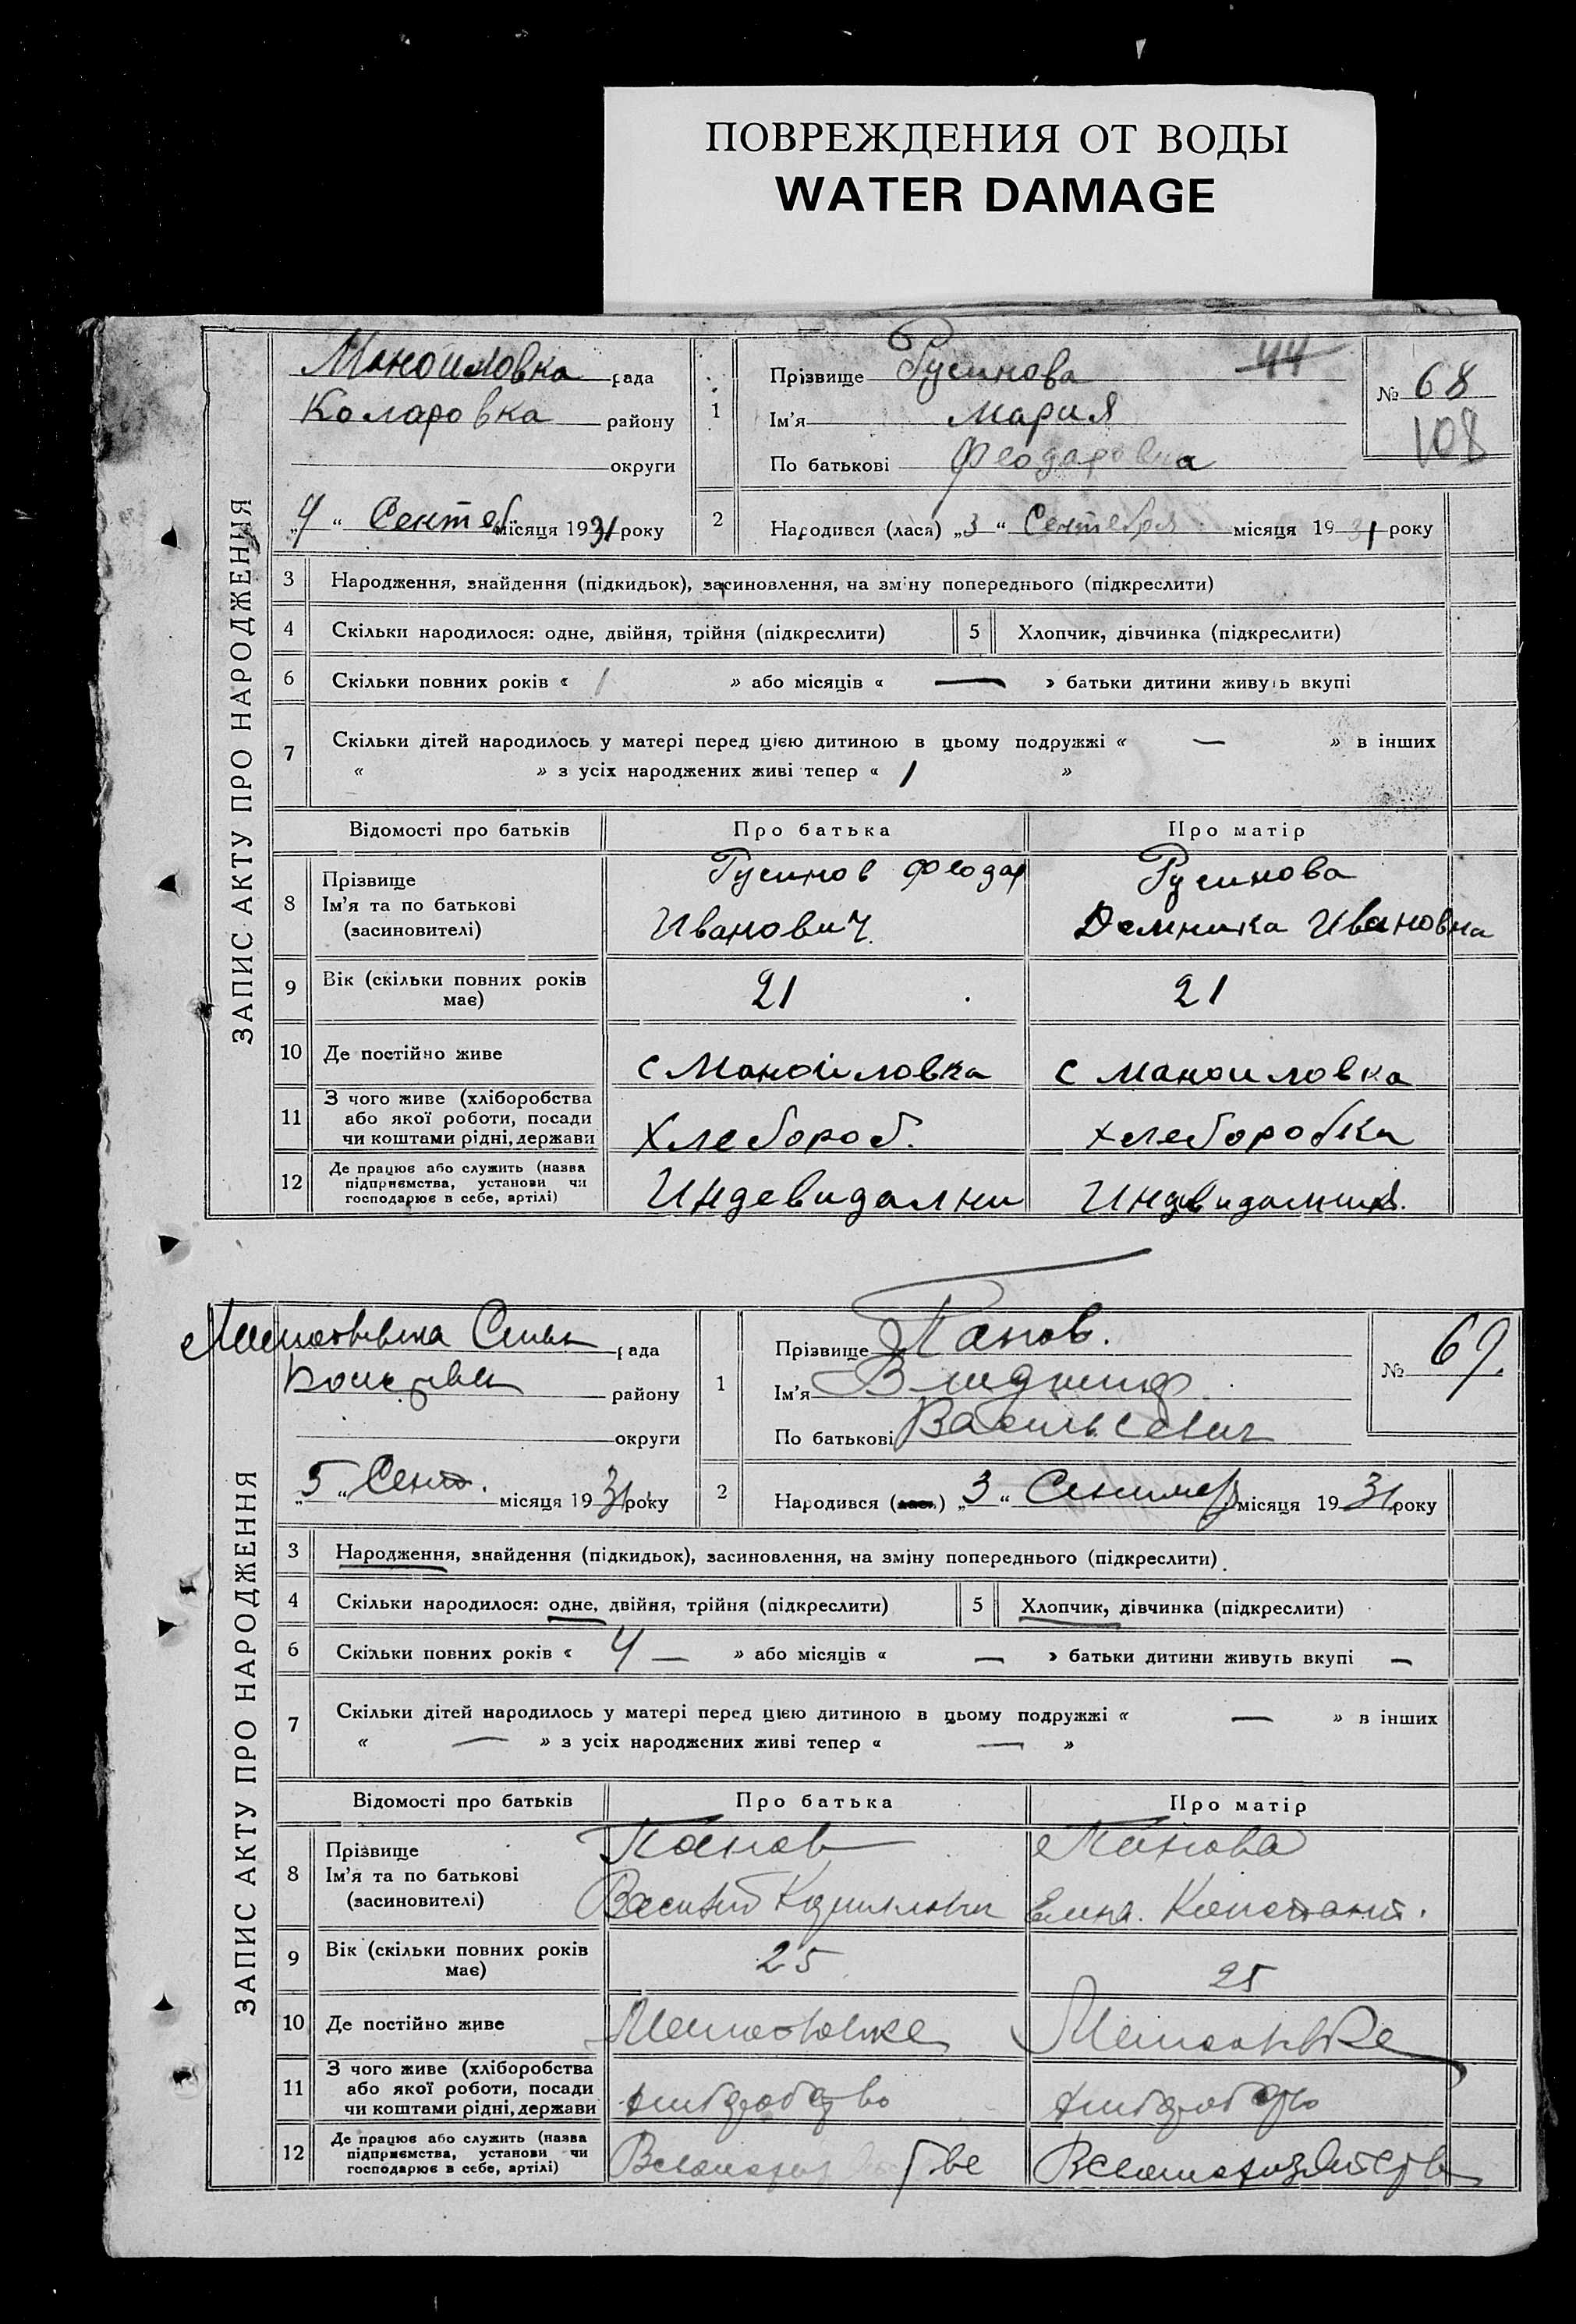 ПОВРЕЖДЕНИЯ ОТ ВОДЫ
WATER DAMAGE
ЗАПИС АКТУ ПРО НАРОДЖЕННЯ
Маноиловка рада
Коларовка району
округи
„4“ Сентеб. місяця 1931 року
1
Прізвище Русинова 44
Ім'я Мария
По батькові Феодаровна
№ 68
108
2 Народився (лася) „3“ Сентебря місяця 1931 року
3 Народження, знайдення (підкидьок), засиновлення, на зміну попереднього (підкреслити)
4 Скільки народилося: одне, двійня, трійня (підкреслити) 5 Хлопчик, дівчинка (підкреслити)
6 Скільки повних років « 1 » або місяців « — » батьки дитини живуть вкупі
7 Скільки дітей народилось у матері перед цією дитиною в цьому подружжі « — » в інших
« » з усіх народжених живі тепер « 1 »
Відомості про батьків Про батька Про матір
8 Прізвище Ім'я та по батькові (засиновителі)
Русинов Феодар Иванович
Русинова Домника Ивановна
9 Вік (скільки повних років має) 21 21
10 Де постійно живе с Маноиловка с Маноиловка
11 З чого живе (хліборобства або якої роботи, посади чи коштами рідні, держави Хлебороб. хлеборобка
12 Де працює або служить (назва підприємства, установи чи господарює в себе, артілі) Индевидални
ЗАПИС АКТУ ПРО НАРОДЖЕННЯ
рада
району
округи
„5“ Сент. місяця 1931 року
1
Прізвище Панов.
Ім'я
По батькові Васильевич
№ 69
2 Народився „3“ місяця 1931 року
3 Народження, знайдення (підкидьок), засиновлення, на зміну попереднього (підкреслити)
4 Скільки народилося: одне, двійня, трійня (підкреслити) 5 Хлопчик, дівчинка (підкреслити)
6 Скільки повних років « 4 — » або місяців « — » батьки дитини живуть вкупі —
7 Скільки дітей народилось у матері перед цією дитиною в цьому подружжі « — » в інших
« — » з усіх народжених живі тепер « — »
Відомості про батьків Про батька Про матір
8 Прізвище Ім'я та по батькові (засиновителі)
Панов Василий
Панова Елена. Констант.
9 Вік (скільки повних років має) 25 25
10 Де постійно живе
11 З чого живе (хліборобства або якої роботи, посади чи коштами рідні, держави
12 Де працює або служить (назва підприємства, установи чи господарює в себе, артілі)